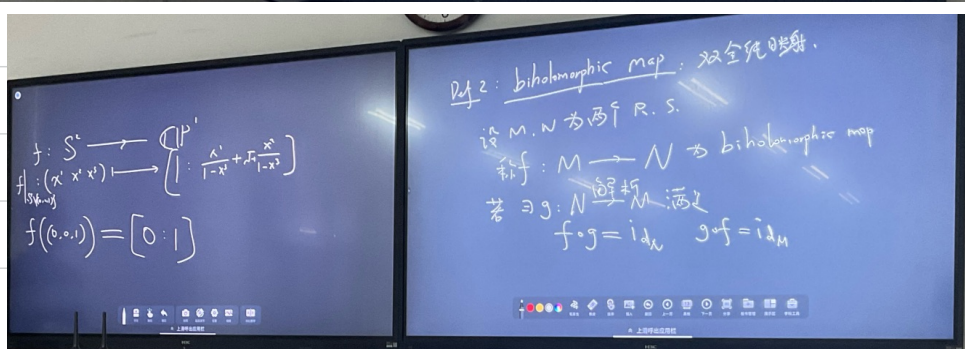 f: S² → ℂP¹
f|: (x¹ x² x³) ↦ [1 : x¹/(1-x³) + √-1 x²/(1-x³)]
f((0,0,1)) = [0:1]
Def 2: biholomorphic map. 双全纯映射.
设 M, N 为两个 R.S.
称 f: M → N 为 biholomorphic map
若 ∃ g: N → M 满足
解析
f∘g = id_N g∘f = id_M